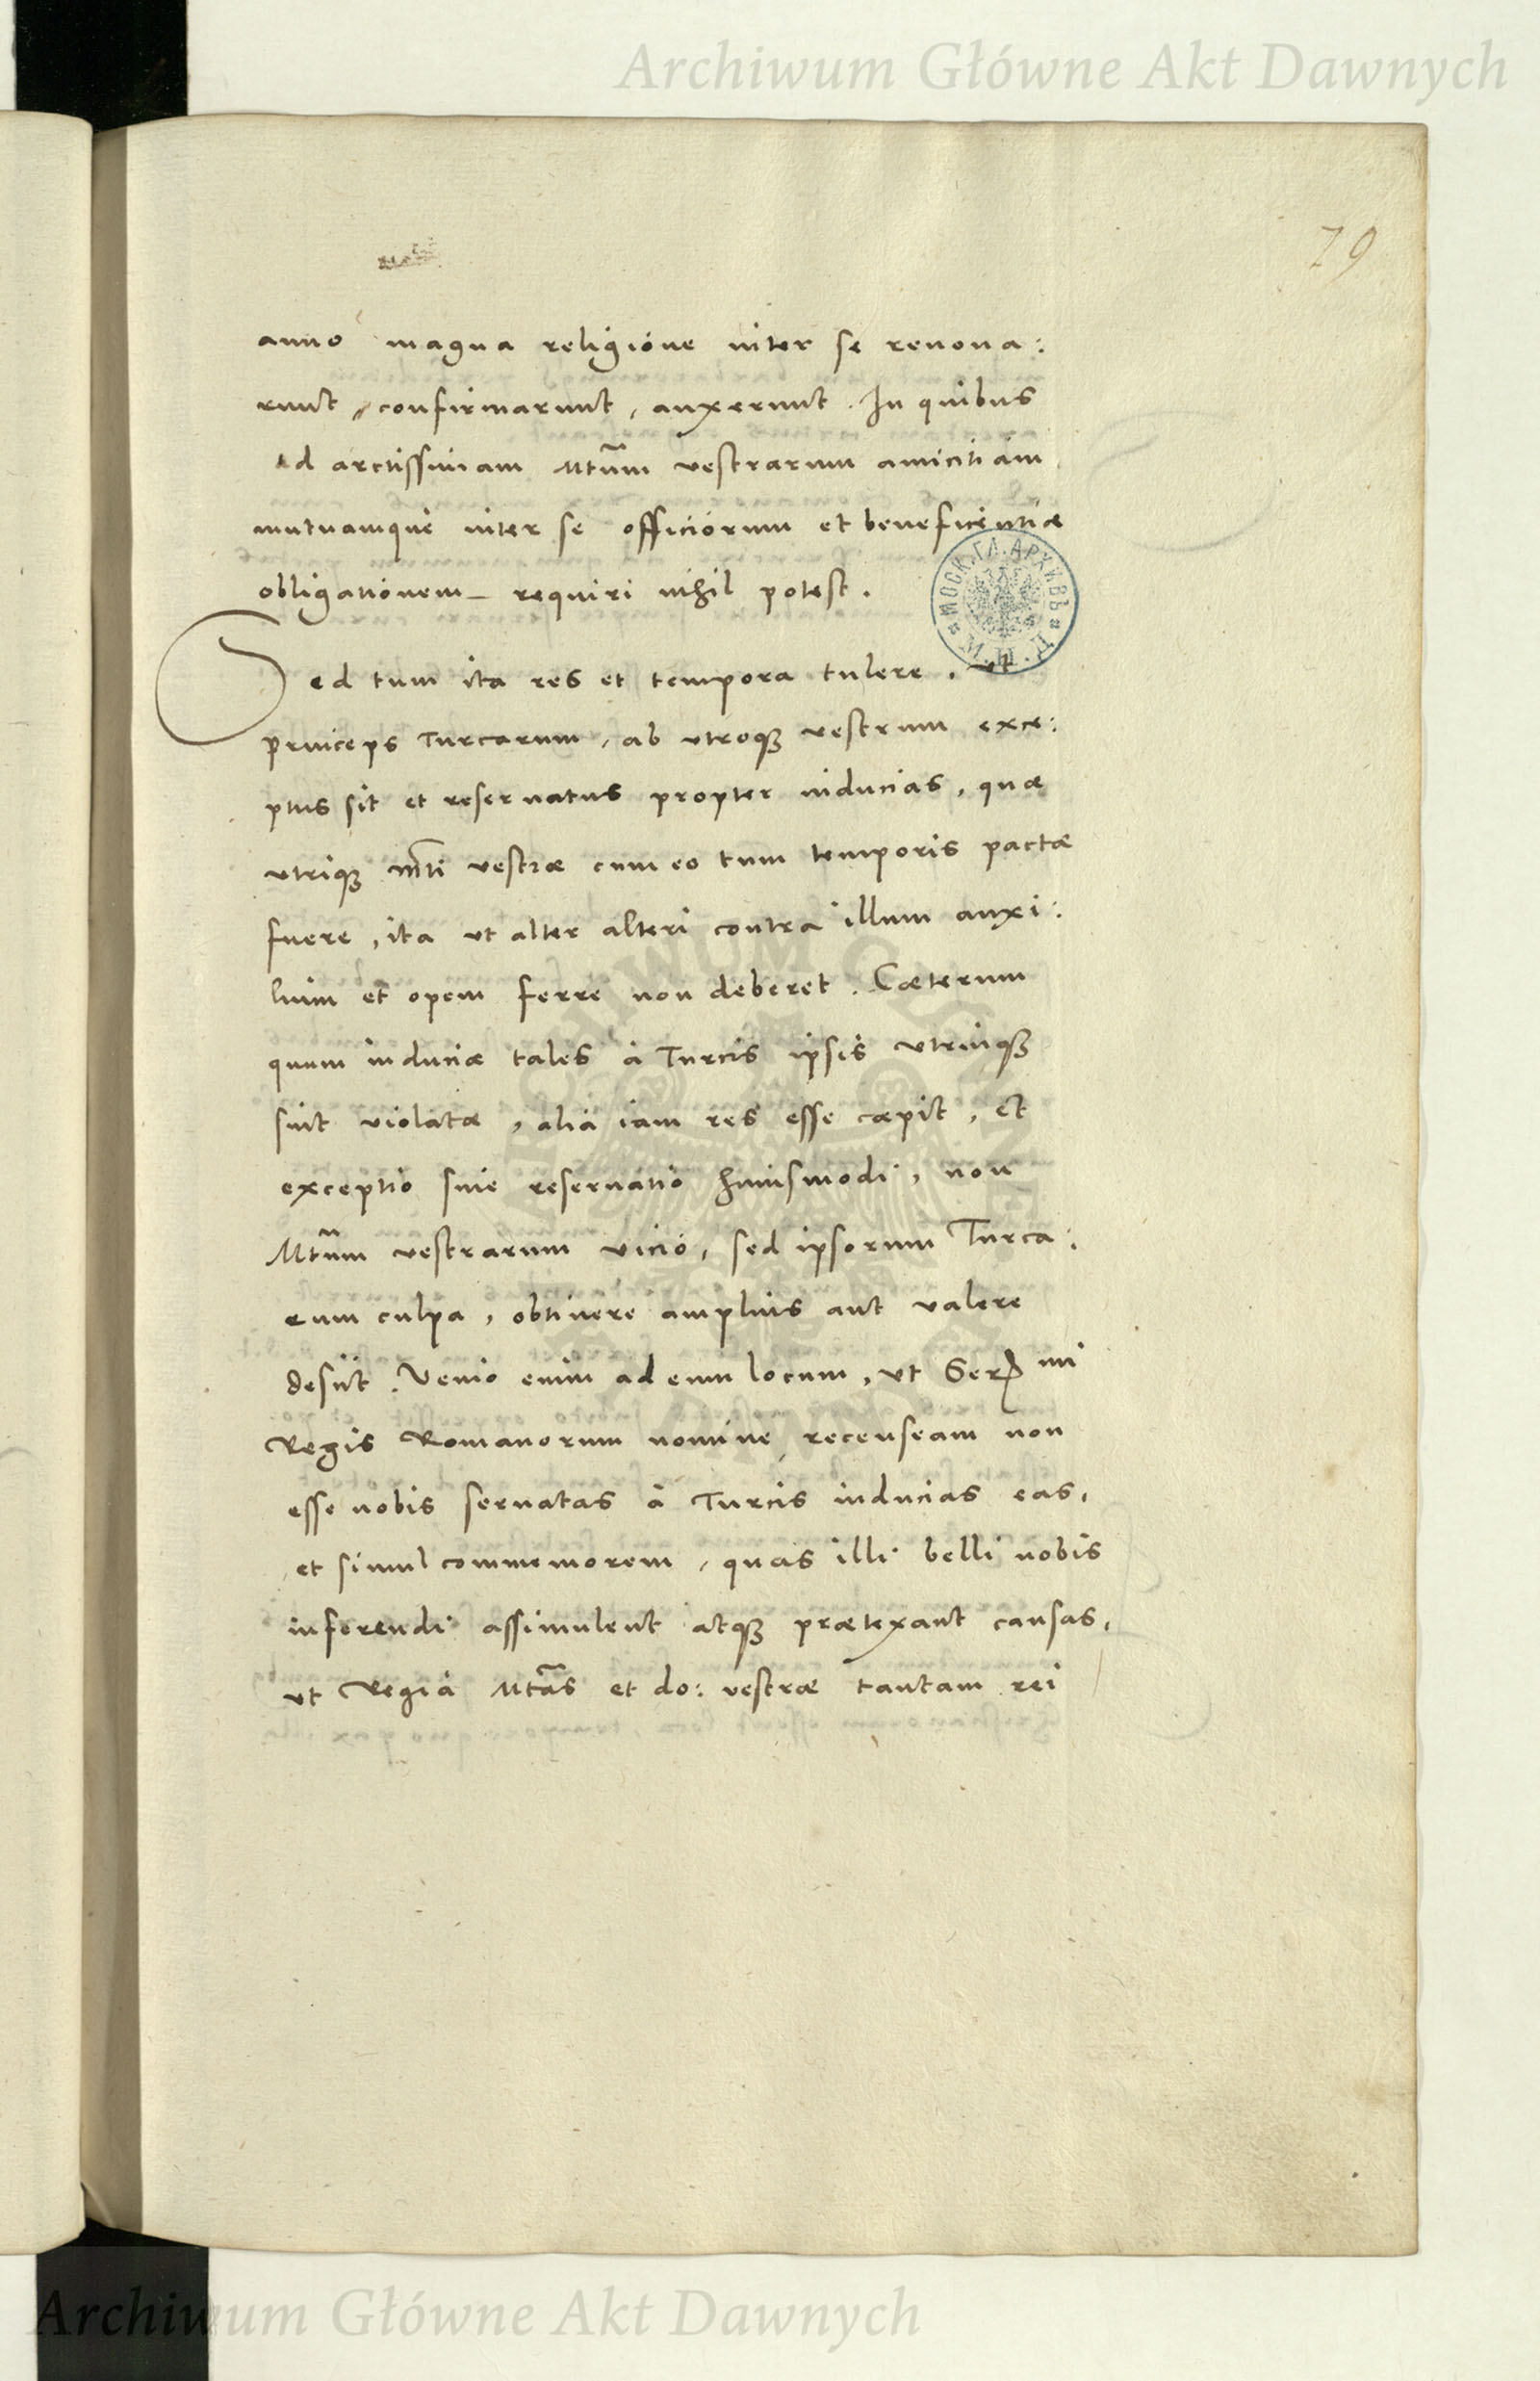 Archiwum Główne Akt Dawnych
79
anno magna religione inter se renoua:
runt, confirmarunt, auxerunt. In quibus
ad arctissimam Mtum vestrarum amicitiam
mutuamque inter se officiorum et beneficentiæ
obligationem requiri nihil potest.
МОСК. ГЛ. АРХИВЪ
Sed tum ita res et tempora tulere, ut
princeps Turcarum, ab utroq3 vestrum exce:
ptus sit et reseruatus propter inducias, quæ
utriq3 Mti vestræ cum eo tum temporis pactæ
fuere, ita ut alter alteri contra illum auxi:
lium et opem ferre non deberet. Cæterum
quum induciæ tales à Turcis ipsis utrinq3
sint violatæ, alia iam res esse cæpit, et
exceptio siue reseruatio huiusmodi, non
Mtum vestrarum vicio, sed ipsorum Turca:
eum culpa, obtinere amplius aut valere
desijt. Venio enim ad eum locum, ut Ser mi
Regis Romanorum nomine recenseam non
esse nobis seruatas à Turcis inducias eas,
et simul commemorem, quas illi belli nobis
inferendi assimulent atq3 prætexant causas,
ut Regia Mtas et do: vestræ tantam rei
Archiwum Główne Akt Dawnych